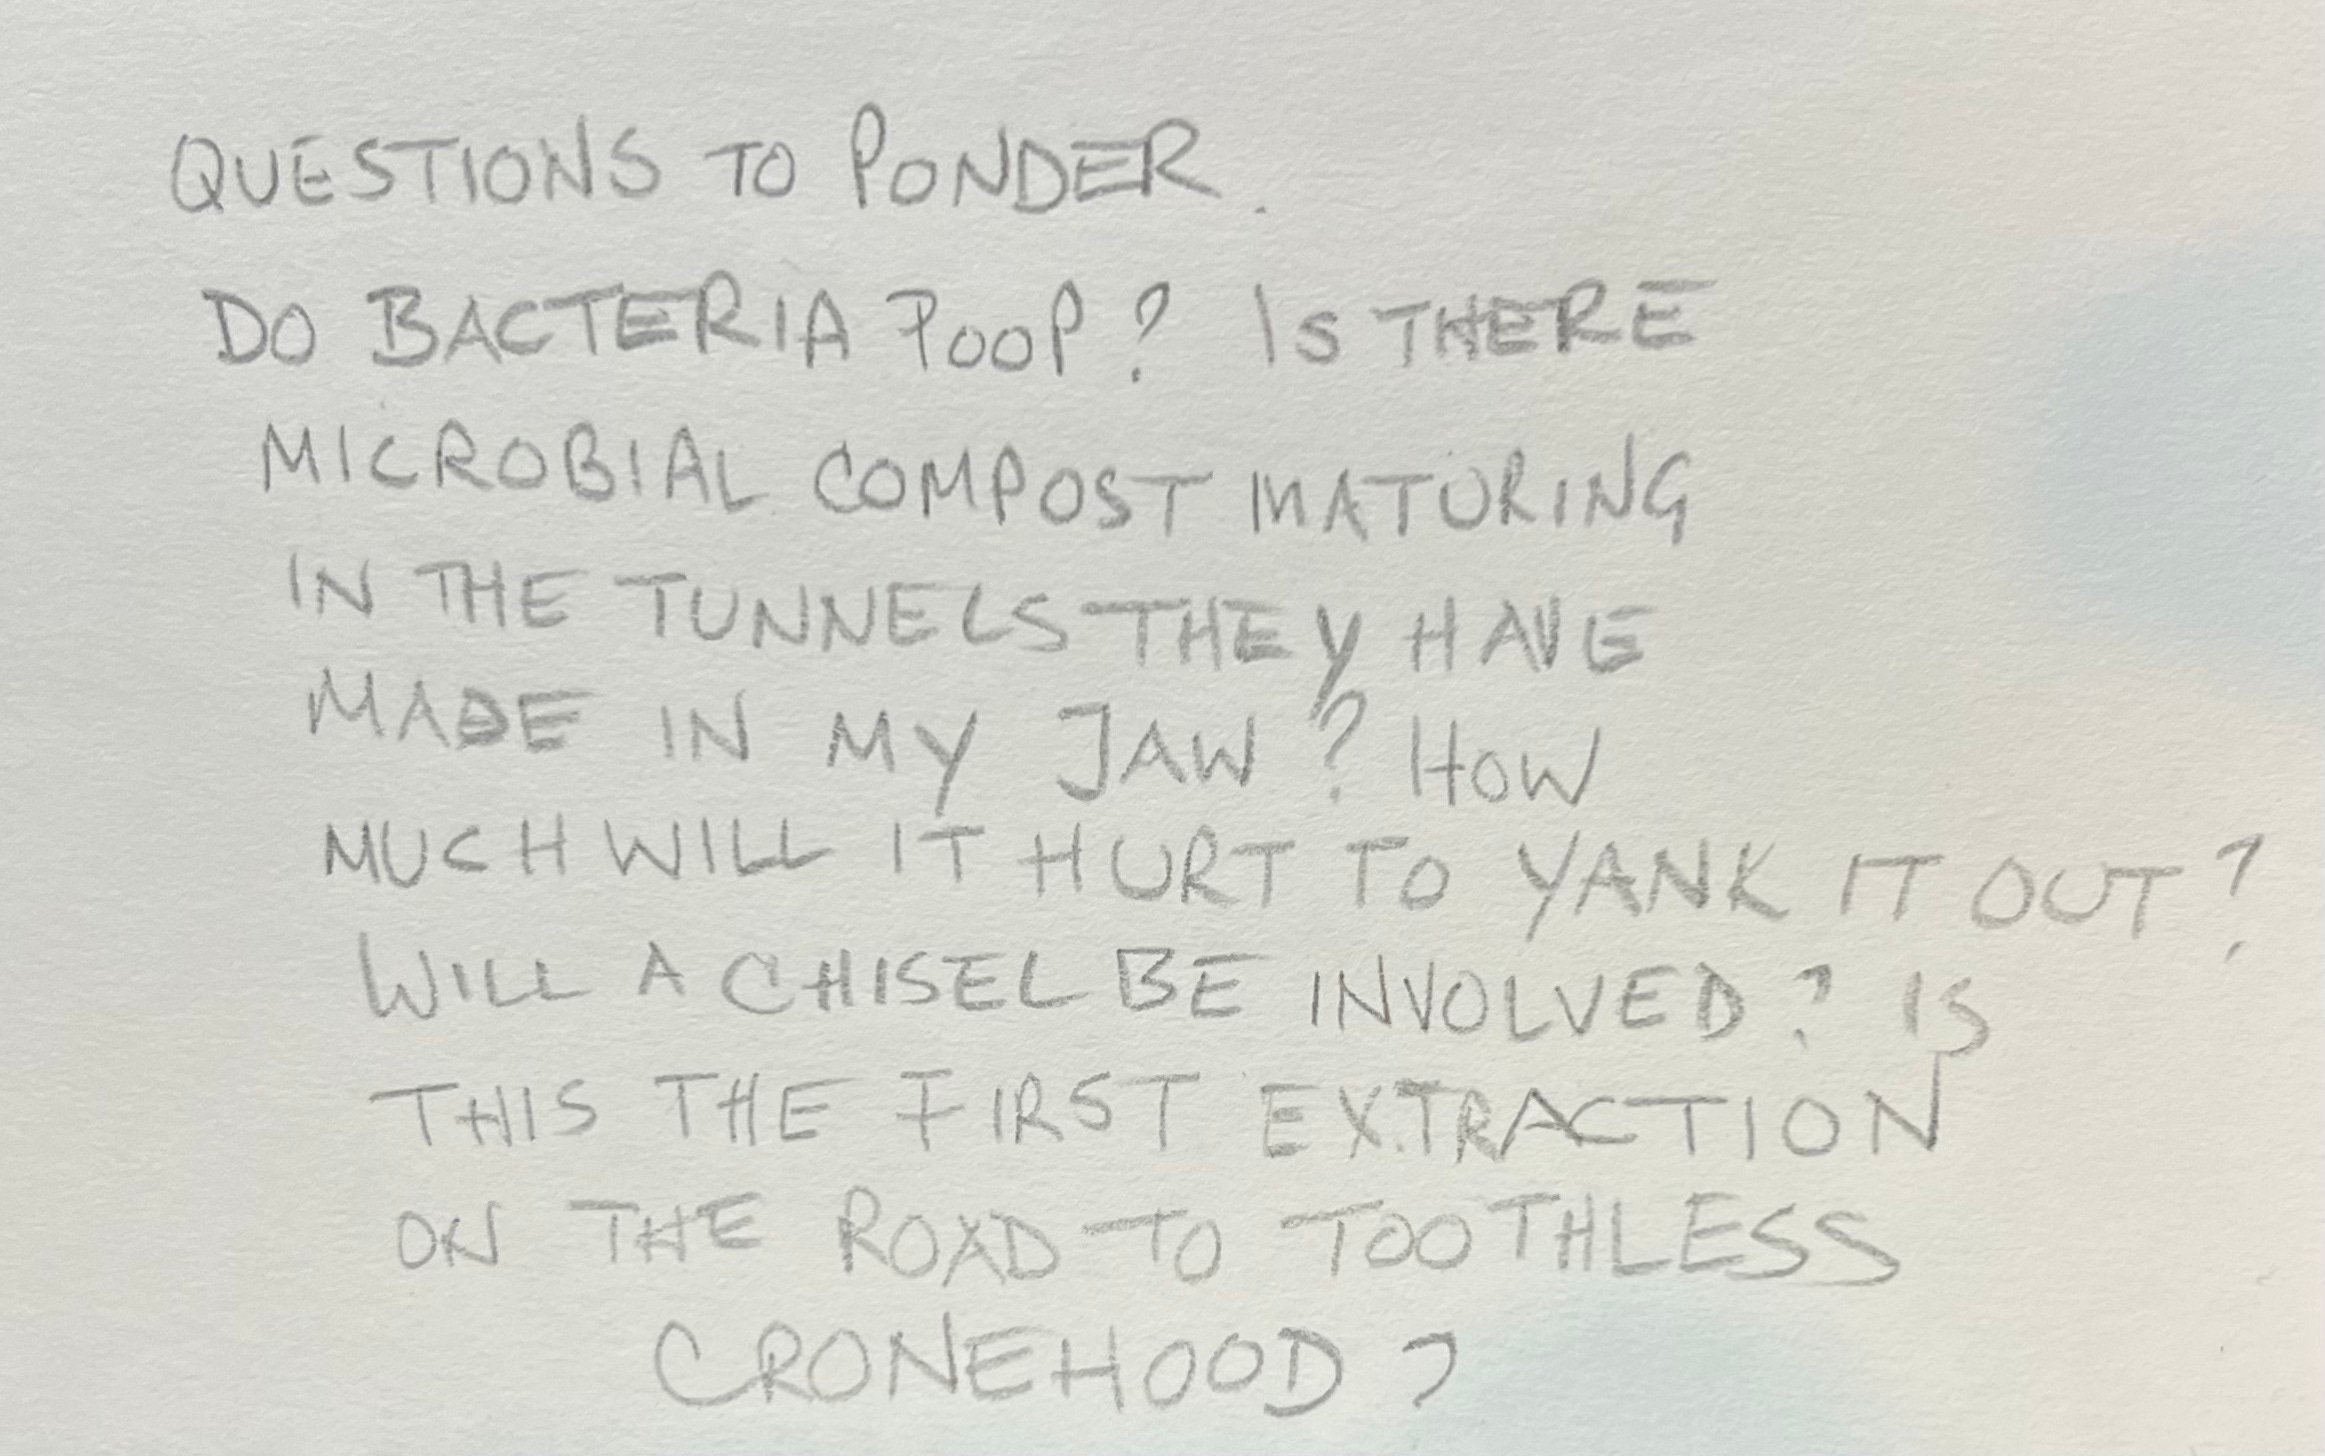 QUESTIONS TO PONDER.
DO BACTERIA POOP? IS THERE
MICROBIAL COMPOST MATURING
IN THE TUNNELS THEY HAVE
MADE IN MY JAW? HOW
MUCH WILL IT HURT TO YANK IT OUT?
WILL A CHISEL BE INVOLVED? IS
THIS THE FIRST EXTRACTION
ON THE ROAD TO TOOTHLESS
CRONEHOOD?